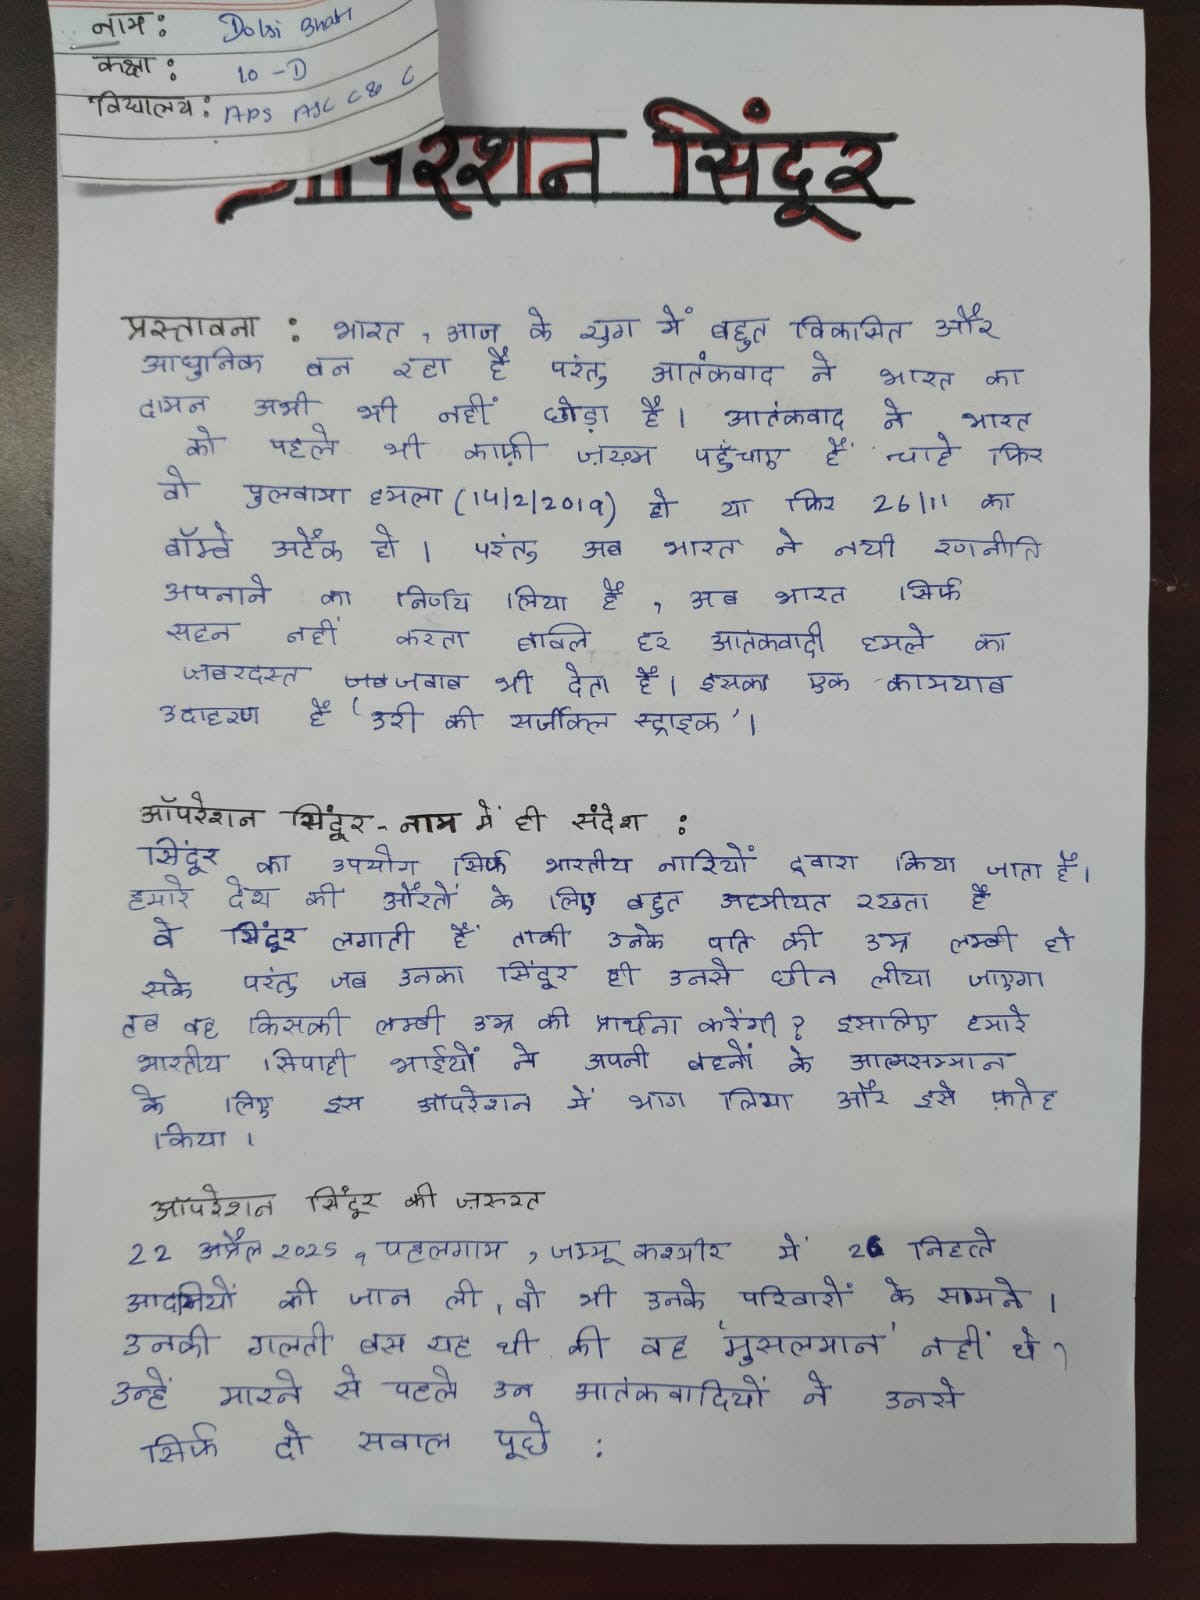 नाम: Dolsi Bhatt
कक्षा: 10 - D
विद्यालय: APS ASC C & C
ऑपरेशन सिंदूर
प्रस्तावना : भारत , आज के युग में बहुत विकासित और
आधुनिक बन रहा है परंतु आतंकवाद ने भारत का
दामन अभी भी नहीं छोड़ा है। आतंकवाद ने भारत
को पहले भी काफ़ी ज़ख़्म पहुंचाए हैं चाहे फिर
वो पुलवामा हमला (14/2/2019) हो या फिर 26/11 का
बॉम्बे अटैक हो । परंतु अब भारत ने नयी रणनीति
अपनाने का निर्णय लिया है , अब भारत सिर्फ
सहन नहीं करता बाकि हर आतंकवादी हमले का
ज़बरदस्त जवाब भी देता है। इसका एक कामयाब
उदाहरण है 'उरी की सर्जीकल स्ट्राइक'।
ऑपरेशन सिंदूर - नाम में ही संदेश :
सिंदूर का उपयोग सिर्फ भारतीय नारियों द्वारा किया जाता है।
हमारे देश की औरतों के लिए बहुत अहमीयत रखता है
वे सिंदूर लगाती हैं ताकी उनके पति की उम्र लम्बी हो
सके परंतु जब उनका सिंदूर ही उनसे छीन लीया जाएगा
तब वह किसकी लम्बी उम्र की प्रार्थना करेंगी? इसलिए हमारे
भारतीय सिपाही भाईयों ने अपनी बहनों के आत्मसम्मान
के लिए इस ऑपरेशन में भाग लिया और इसे फ़तेह
किया ।
ऑपरेशन सिंदूर की ज़रुरत
22 अप्रैल 2025 , पहलगाम , जम्मू कश्मीर में 26 निहत्ते
आदमियों की जान ली, वो भी उनके परिवारों के सामने ।
उनकी गलती बस यह थी की वह 'मुसलमान' नहीं थे ,
उन्हें मारने से पहले उन आतंकवादियों ने उनसे
सिर्फ दो सवाल पूछे :